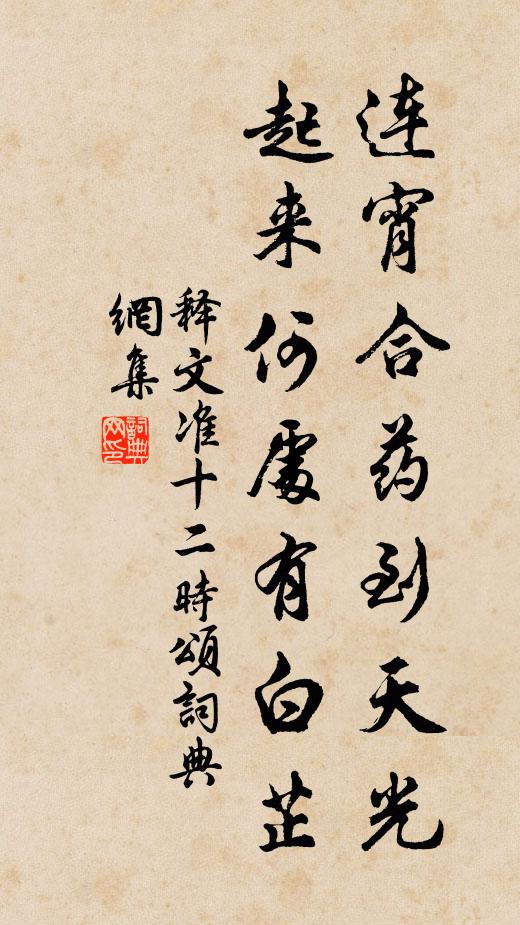 连宵合药到天光
起来何處有白芷
释文准十二時頌詞典
網集
詞典
网印